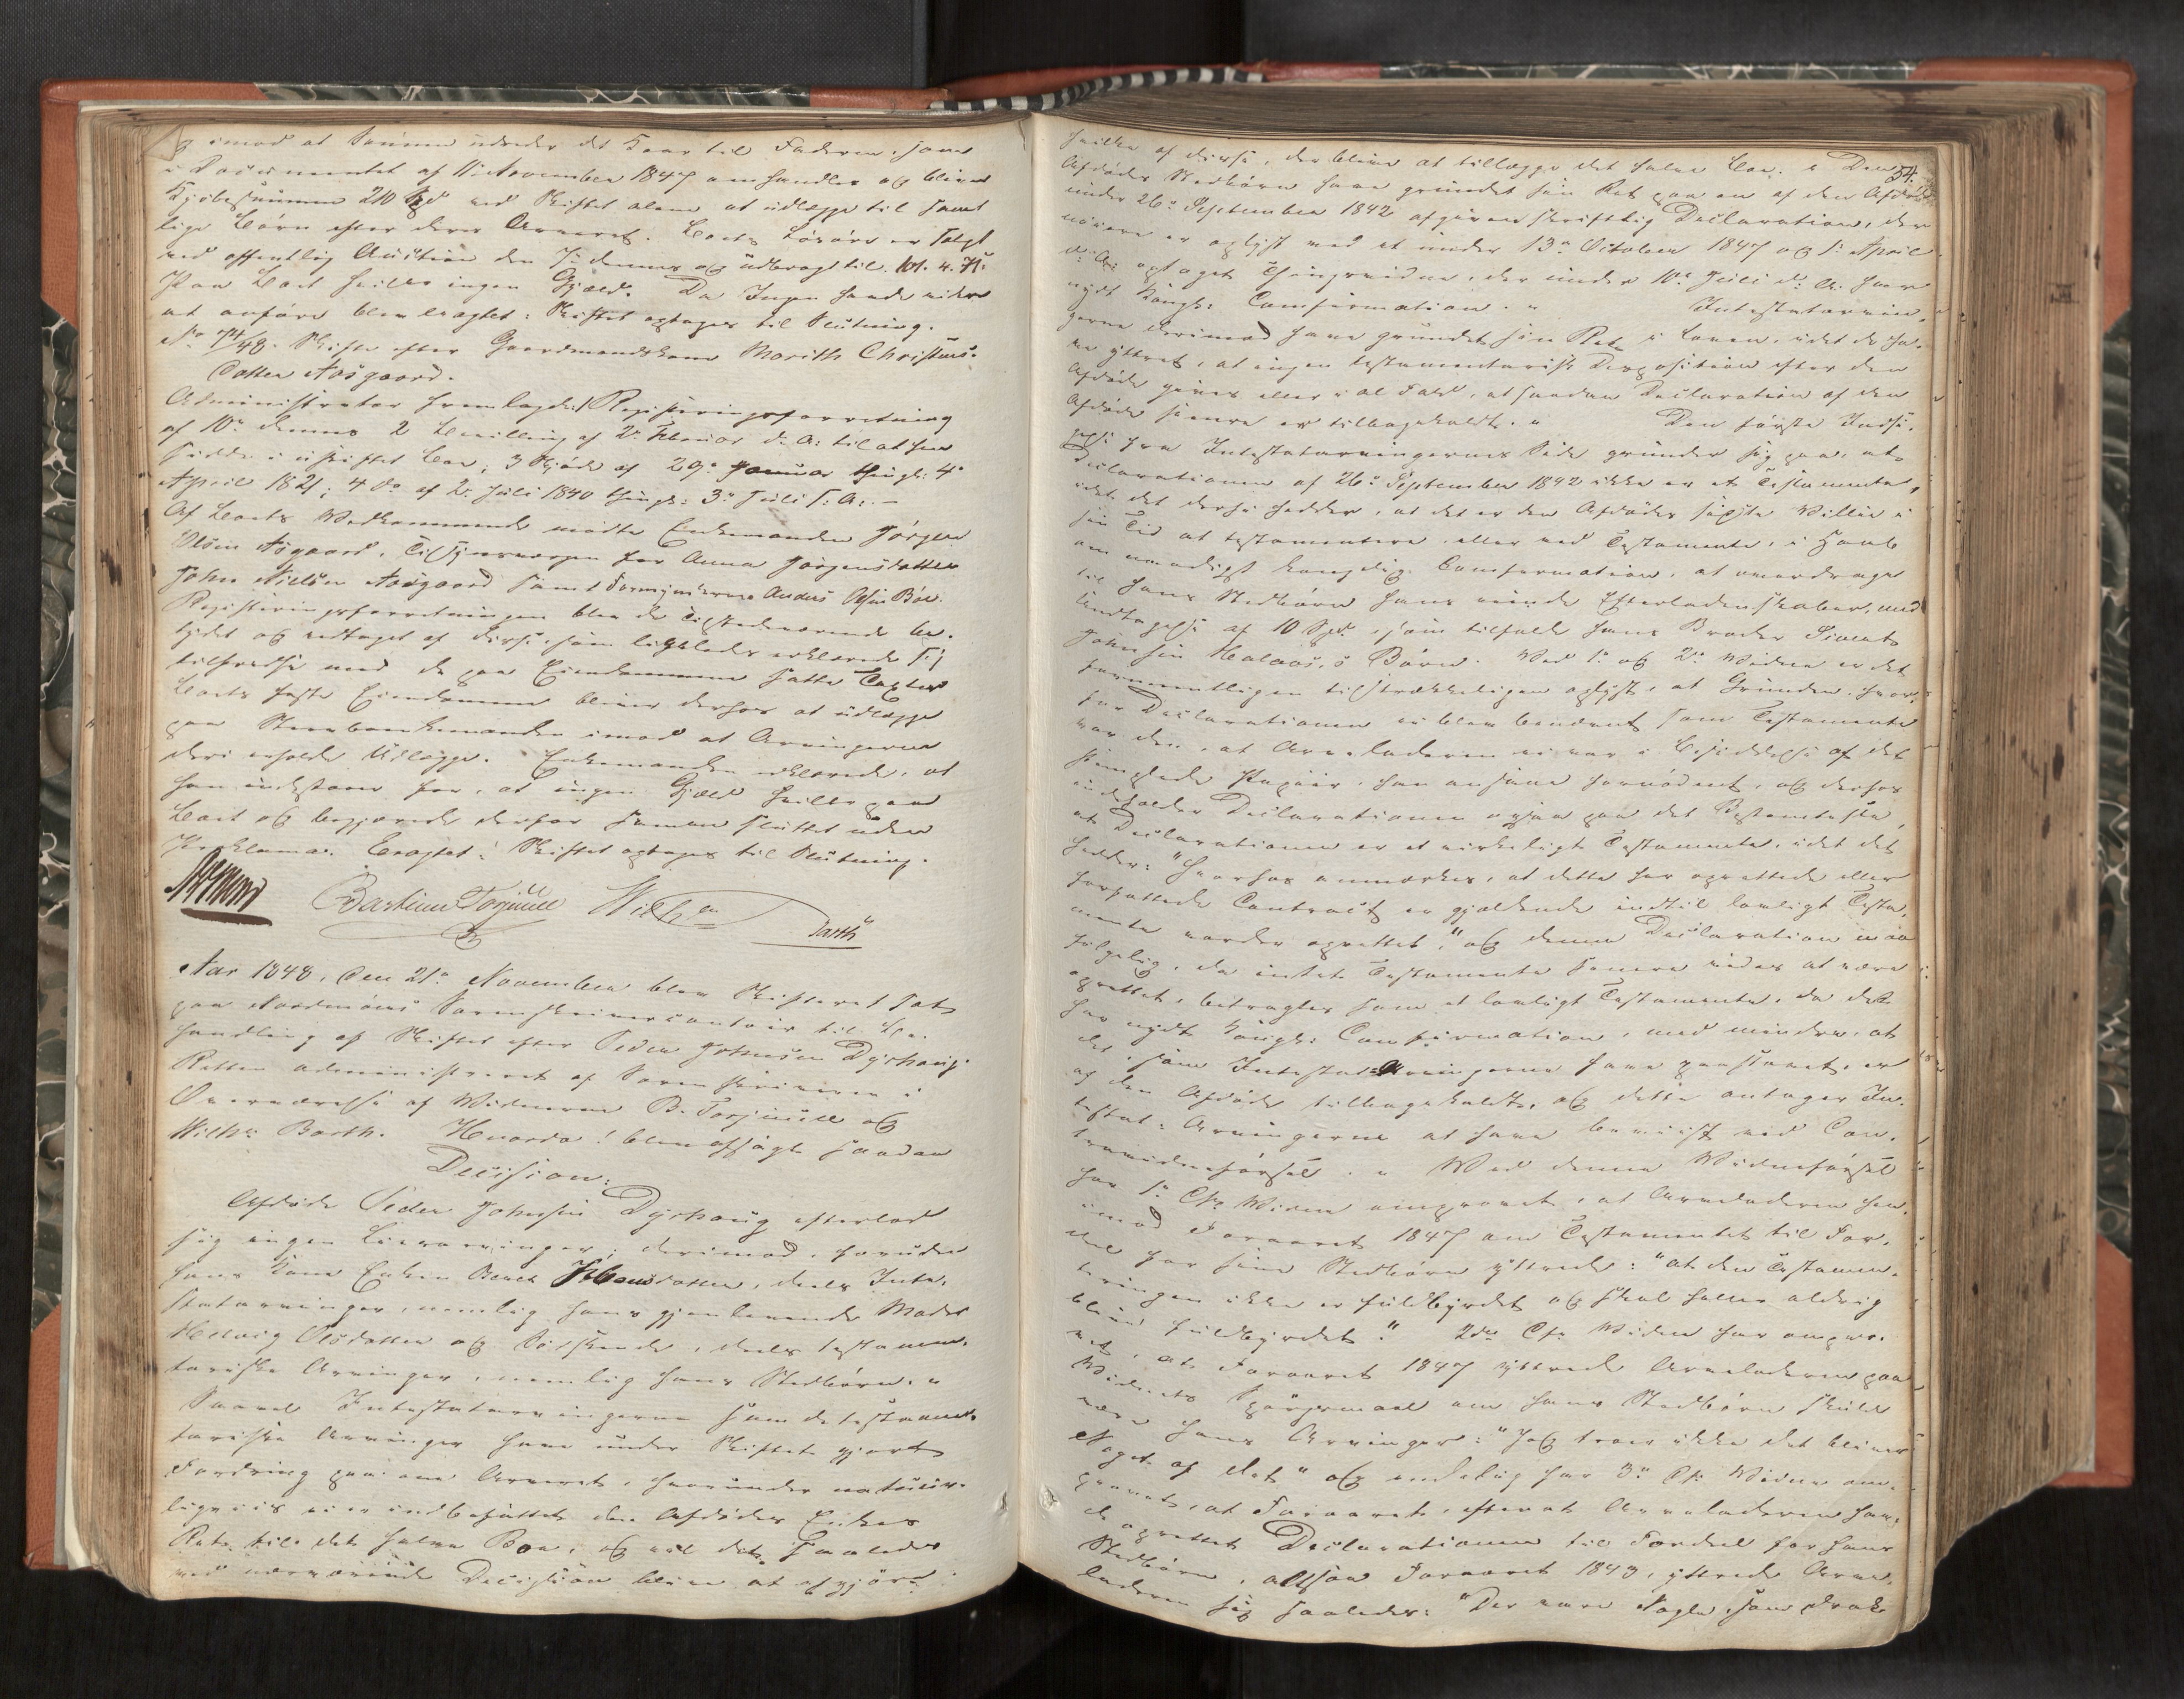 imod at Sønnen udreder det Kaar til Faderen, som
i Documentet af 11 November 1847 omhandles og bliver
Kjøbesummen 210 Spd ved Skiftet alene at udlægge til samt
lige Børn efter deres Arveret. Boets Løsøre er solgt
ved offentlig Auction den 7 dennes og udbragt til 101. 4. 71.
Paa Boet hviler ingen Gjæld. Da Ingen havde videre
at anføre blev eragtet: Skiftet optages til Slutning.
No 74/48. Skifte efter Gaardmandskone Marith Christens-
datter Aasgaard.
Administrator fremlagde 1 Registreringsforretning
af 10de dennes 2 Bevilling af 2 Februar d. A. til at hen
sidde i uskiftet Boe; 3 Skjøde af 29de Januar thingl. 4de
April 1821; 4 do af 2. Juli 1840 thingl: 3de Juli s. A. -
Af Boets Vedkommende mødte Enkemanden Jørgen
Olsen Aasgaard, Tilsynsværgen for Anna Jørgensdatter
John Nielsen Aasgaard samt Formynderne Anders Olsen Bøe.
Registreringsforretningen blev de Tilstedeværende be-
tydet og vedtaget af disse, som ligeledes erklærede sig
tilfredse med de paa Eiendommene satte Taxter
Boets faste Eiendomme bliver derfor at udlægge
paa Stervboenkemanden imod at Arvingerne
deri erholde Udlæg. Enkemanden erklærede, at
han indestaaer for, at ingen Gjæld hviler paa
Boet og begjærede derfor samme sluttet uden
Proklama. Eragtet: Skiftet optages til Slutning.
Bastian Torjuul Wilh.
Barth
Aar 1848, den 21de November blev Skifteret sat
paa Nordmøers Sorenskrivercontoir til Be-
handling af Skiftet efter Peder Johnsen Dyrhaug.
Retten administreret af Sorenskriveren i
Overværelse af Vidnerne B. Torjuul og
Wilh. Barth. Hvorda! blev afsagt saadan
Decision:
Afdøde Peder Johnsen Dyrhaug efterlod
sig ingen Livsarvinger; derimod, foruden
hans Kone Enken Beret datter, deels Inte-
statarvinger, nemlig hans gjenlevende Moder
Helvig Olsdatter og Sødskende, deels testamen-
tariske Arvinger, nemlig hans Stedbørn. "
Saavel Intestatarvingerne som de testamen-
tariske Arvinger have under Skiftet gjort
Fordring paa ene Arveret, hvorunder naturlig-
ligviis ei er indbefattet den Afdødes Enkes
Ret til det halve Boe, og vil det saaledes
ved nærværende Decision blive at afgjøre
54.
hvilke af disse, der bliver at tillægge det halve Boe. " Den
Afdødes Stedbørn have grundet sin Ret paa en af den Afdøde
under 26de September 1842 afgiven skriftlig Declaration, der
nærmere er oplyst med et under 13de October 1847 og 1. April
d. A. optaget Thingsvidne, der under 10de Juli d. A. har
nydt Kongl: Confirmation. " Intestatarvin-
gerne derimod have grundet sin Ret i Loven, idet de ha-
ve yttret, at ingen testamentarisk Disposition efter den
Afdøde gives eller i al Fald, at saadan Declaration af den
Afdøde senere er tilbagekaldt. " Den første Indsi-
gelse fra Intestatarvingernes Side grunder sig paa, at
Declarationen af 26de September 1842 ikke er et Testamente,
idet det deri hedder, at det er den Afdødes sidste Villie i
sin Tid at testamentere, eller ved Testamente, i Haab
om naadigst kongelig Confirmation, at overdrage
til hans Stedbørn hans Efterladenskaber, med
Undtagelse af 10 Spd. som tilfalde hans Broder Sivert
Johnsen Halaas's Børn. Ved 1. og 2. Vidne er det
formeentligen tilstrækkeligen oplyst, at Grunden, hvor-
for Declarationen ei blev benævnt som Testamente
var den, at Arveladeren ei var i Besiddelse af det
stemplede Papiir, han ansaae fornødent, og derfor
indeholder Declarationen ogsaa paa det Bestemteste,
at Declarationen er et virkeligt Testamente, idet det
hedder: "hvorhos anmærkes, at dette her oprettede eller
forfattede Contract er gjældende indtil lovligt Testa-
mente vorder oprettet," og denne Declaration maa
følgelig, da intet Testamente senere vides at være
oprettet, betragtes som et lovligt Testamente, da det
har nydt Kongl: Confirmation, med mindre, at
det, som Intestat-Arvingerne have paastaaet, er
af den Afdøde tilbagekaldt, og dette antager In-
testat-Arvingerne at have beviist ved Con-
travidneførsel. " Ved denne Vidneførsel
har 1. Ctr. Vidne omprovet, at Arveladeren hen-
imod Foraaret 1847 om Testamentet til For-
deel for sine Stedbørn yttrede: "at den Testamen-
teringen ikke er fuldbyrdet og skal heller aldrig
blive fuldbyrdet." 2det Ctr Vidne har ompro-
vet, at Foraaret 1847 yttrede Arveladeren paa
Vidnets Spørgsmaal om hans Stedbørn skulde
være hans Arvinger: "Jeg troer ikke det bliver
Noget af det" og endelig har 3de Ctr. Vidne om-
provet, at Foraaret, efterat Arveladeren hav-
de oprettet Declarationen til Fordeel for hans
Stedbørn, altsaa Foraaret 1843, yttrede Arve-
laderen sig saaledes: "Der vare Nogle, som